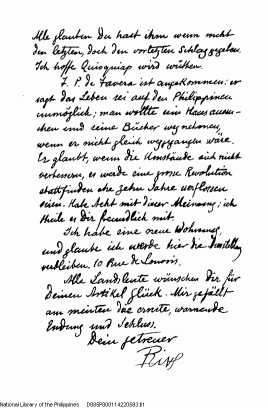 Alle glauben Du hast ihm wenn nicht
den letzten, doch den vorletzten Schlag gegeben.
Ich hoffe Quioquiap wird wüthen.
T. P. de Tavera ist angekommen: er
sagt das Leben sei auf den Philippinen
unmöglich; man wollte ein Haus aussu-
chen und seine Bücher wegnehmen,
wenn er nicht gleich weggegangen wäre.
Er glaubt, wenn die Umstände sich nicht
verbessern, es werde eine grosse Revolution
stattfinden ehe zehn Jahre verflossen
seien. Habe Acht mit dieser Meinung; ich
theile es dir freundlich mit.
Ich habe eine neue Wohnung,
und glaube ich werde hier die
verbleiben. 10 Rue de Louvois.
Alle Landsleute wünschen Dir für
Deinen Artikel Glück. Mir gefällt
am meisten das ernste, warnende
Endung und Schluss.
Dein getreuer
Rizal
National Library of the Philippines